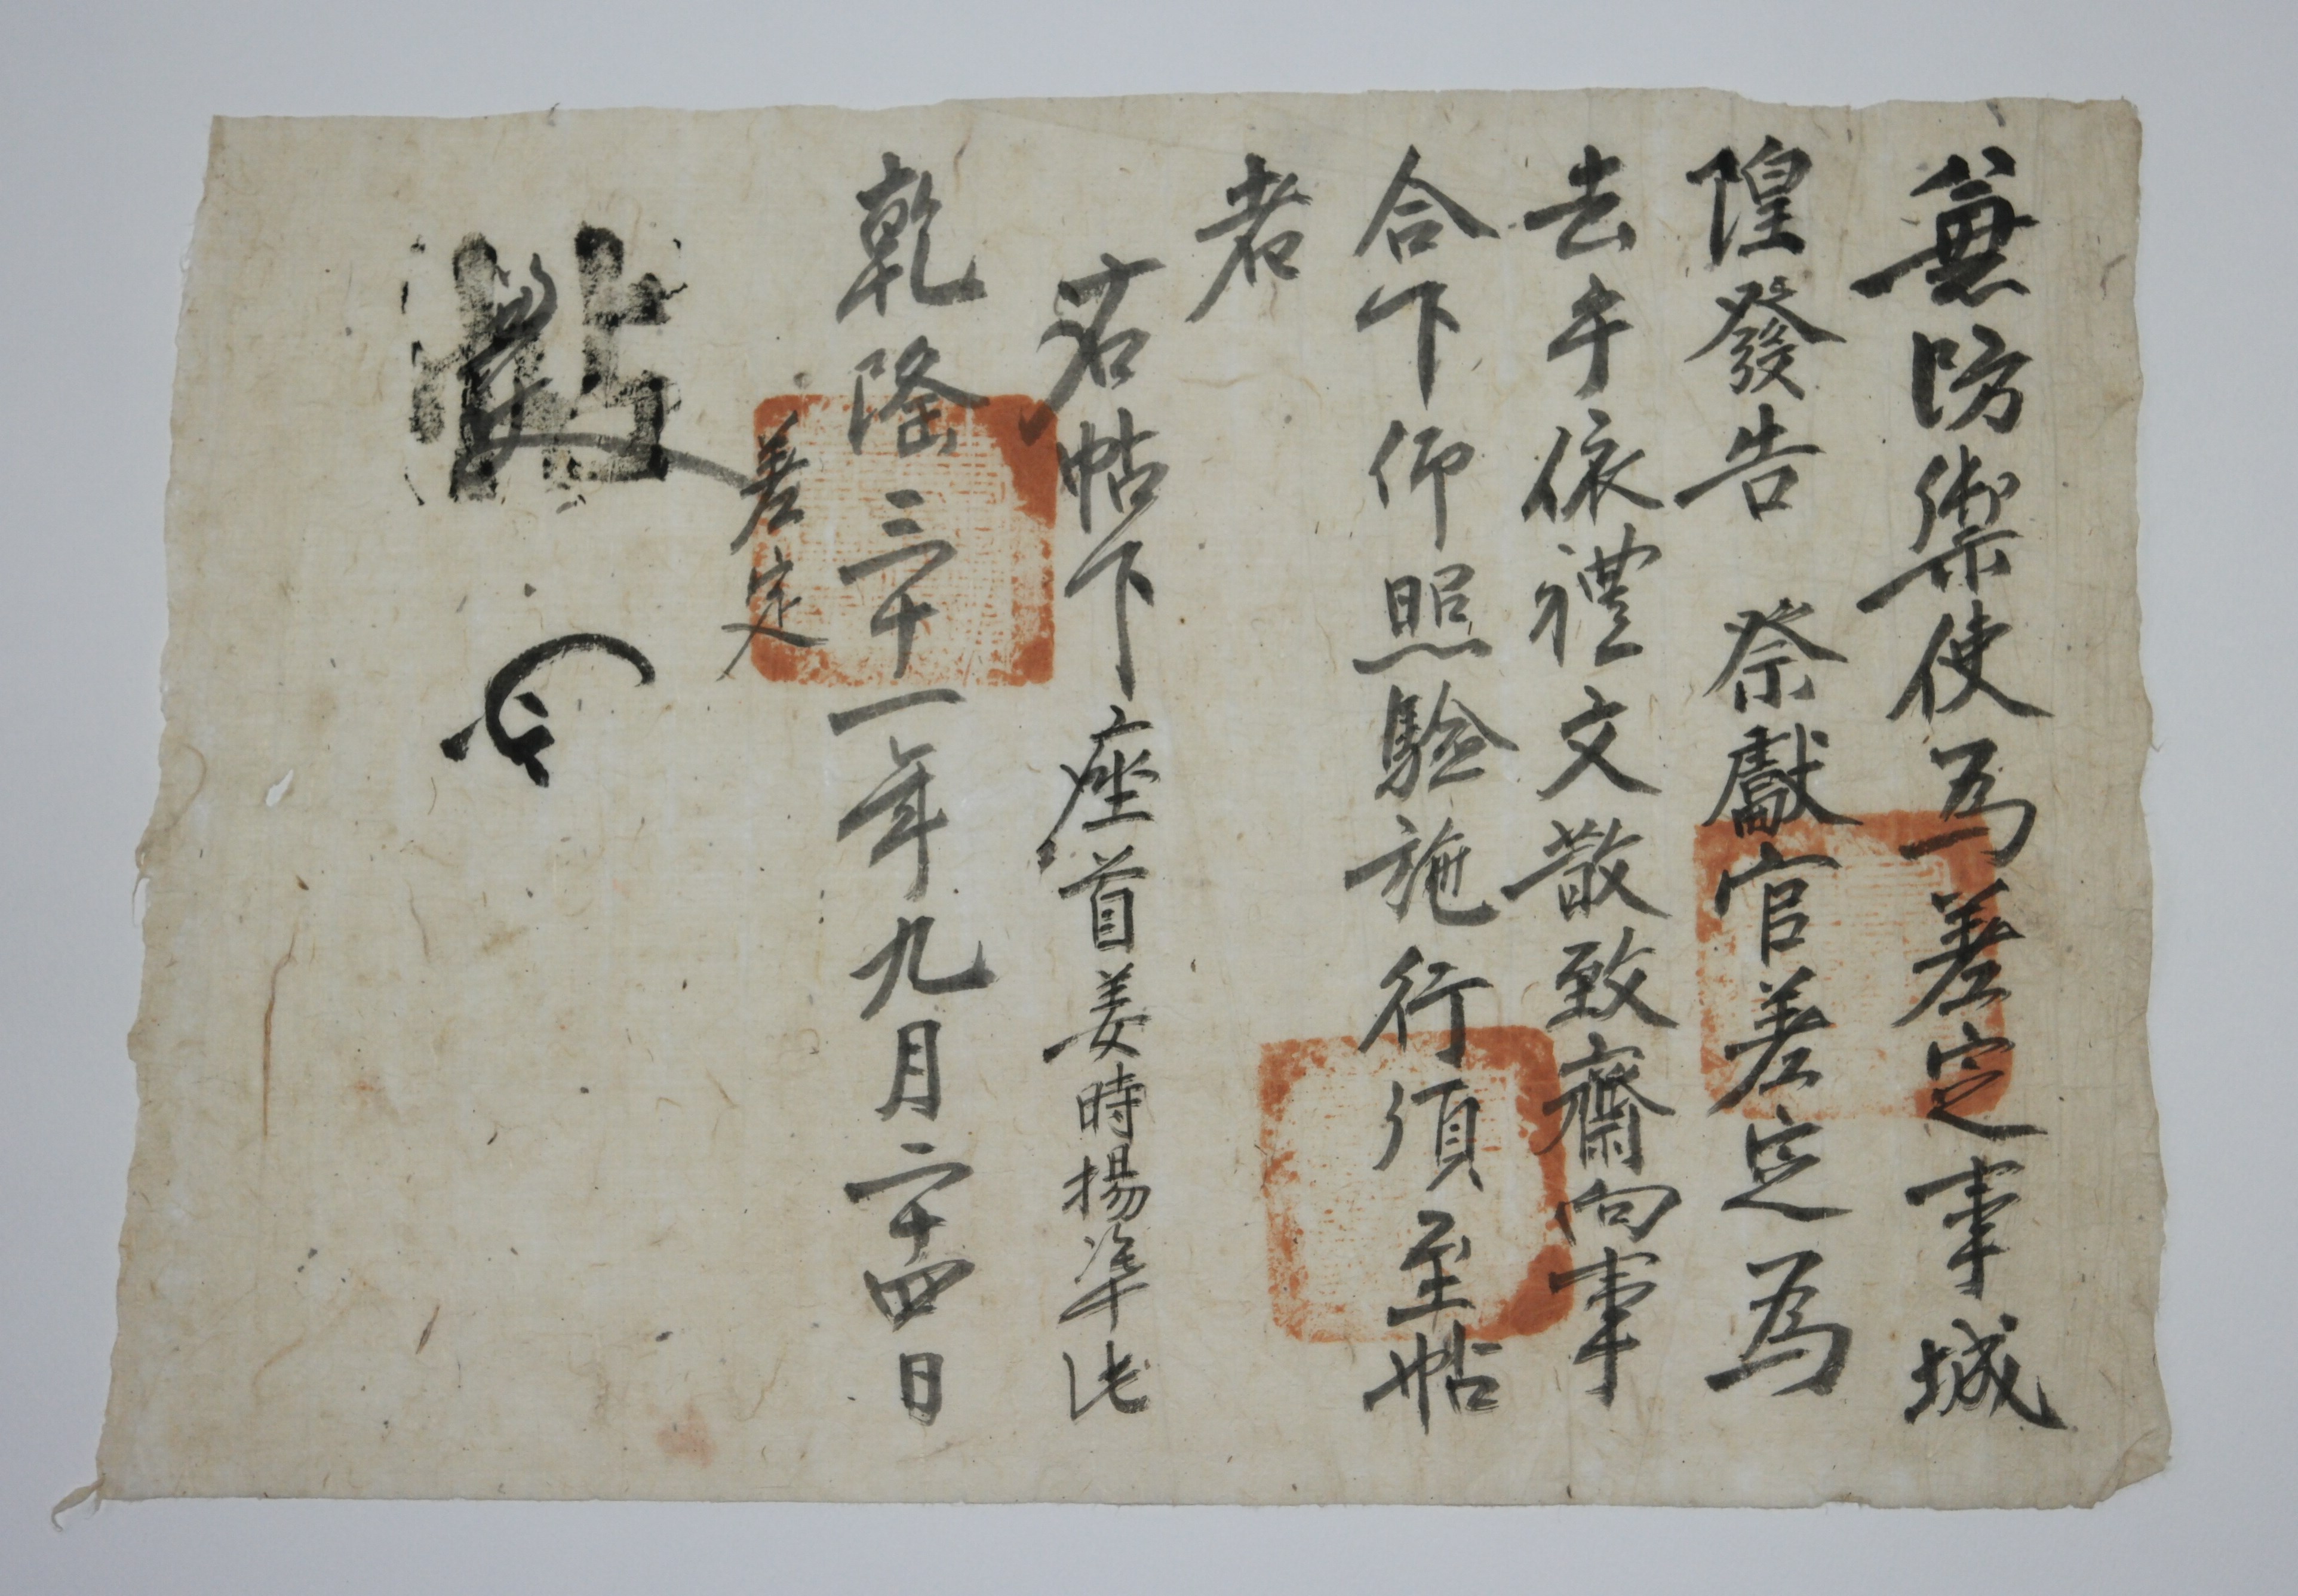 兼防禦使為差定事城
隍發告 祭獻官差定為
去乎依禮文散致齋向事
合下仰照驗施行須至帖
者
右帖下座首姜時揚準此
乾隆三十一年九月二十四日
差定
帖